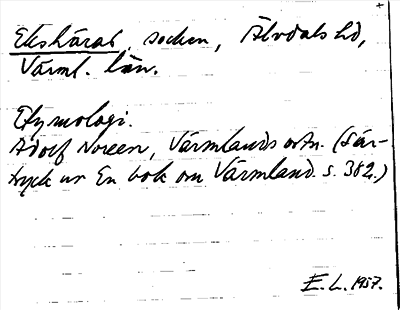 Ekshärad, socken, Älvdals hd,
Värml. län.
Etymologi.
Adolf Noreen, Värmlands ortn. (Sär-
tryck ur En bok om Värmland. s. 362.)
E. L. 1957.